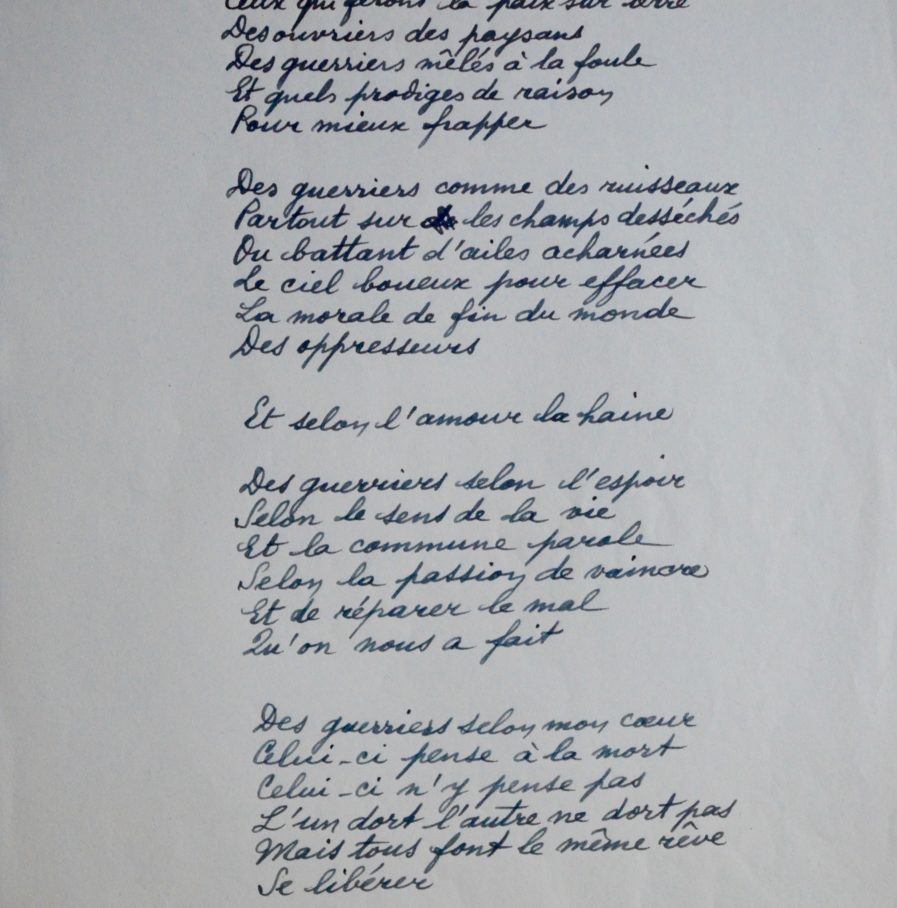 Ceux qui feront la paix sur terre
Des ouvriers des paysans
Des guerriers mêlés à la foule
Et quels prodiges de raison
Pour mieux frapper
Des guerriers comme des ruisseaux
Partout sur les champs desséchés
Ou battant d'ailes acharnées
Le ciel boueux pour effacer
La morale de fin du monde
Des oppresseurs
Et selon l'amour la haine
Des guerriers selon l'espoir
Selon le sens de la vie
Et la commune parole
Selon la passion de vaincre
Et de réparer le mal
Qu'on nous a fait
Des guerriers selon mon cœur
Celui-ci pense à la mort
Celui-ci n'y pense pas
L'un dort l'autre ne dort pas
Mais tous font le même rêve
Se libérer